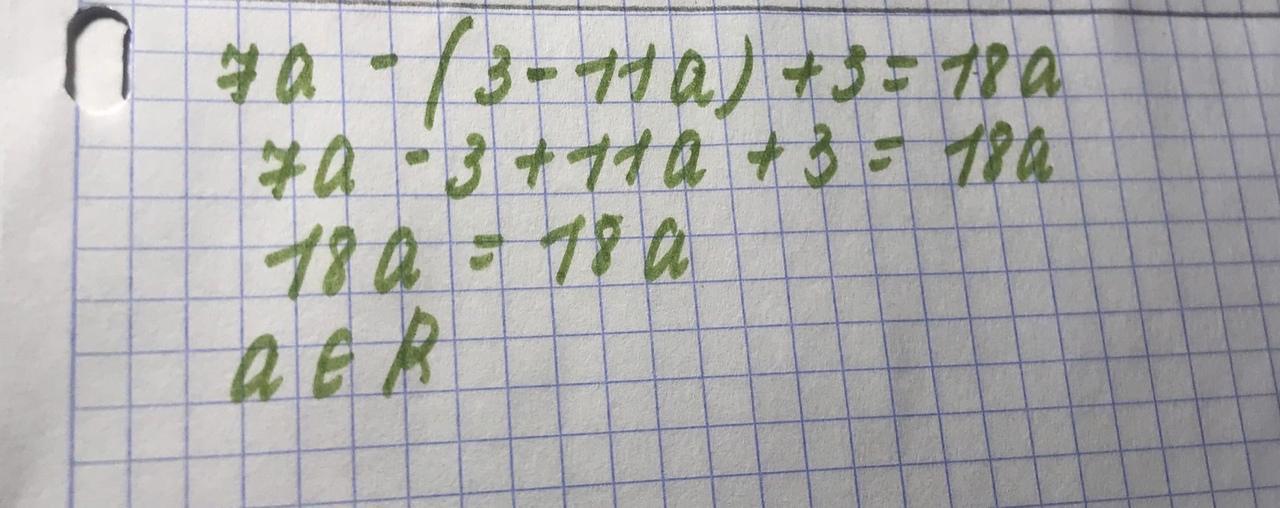 7a - (3 - 11a) + 3 = 18a
7a - 3 + 11a + 3 = 18a
18a = 18a
a ∈ R